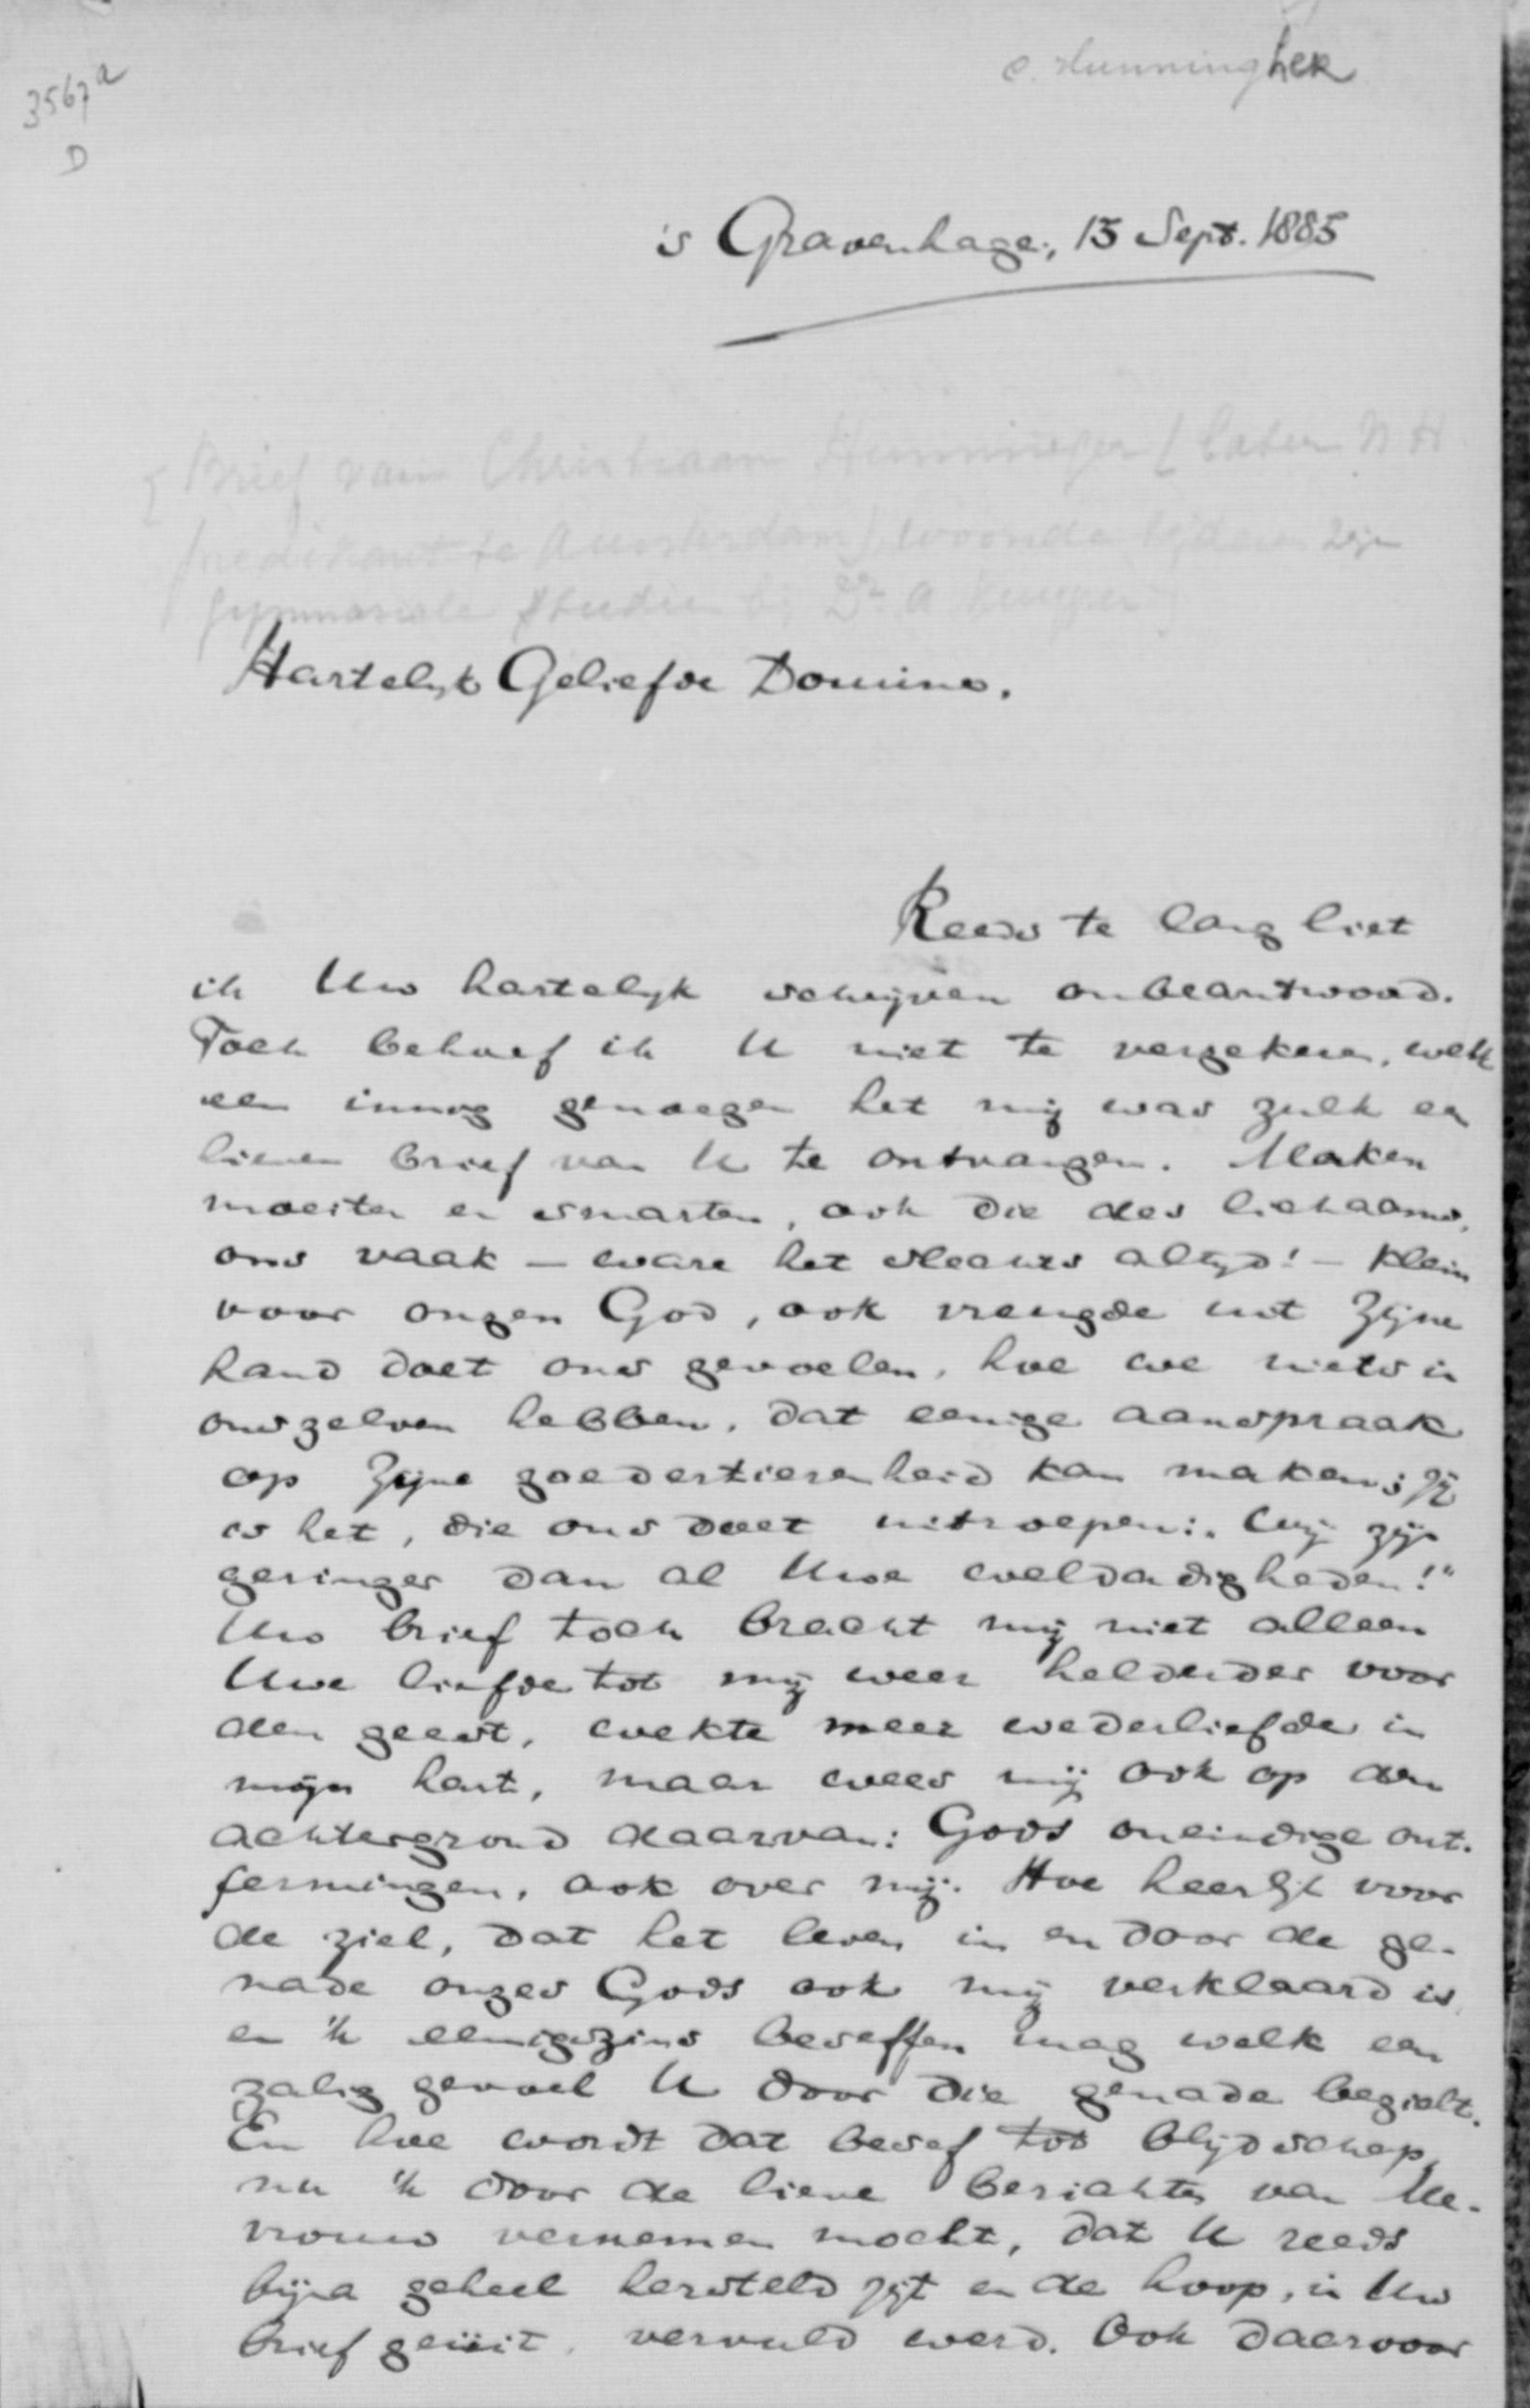 3567a
D
C. Hunningher
's Gravenhage, 15 Sept. 1885
[Brief van Christiaan Hunningher (later N H
predikant te Amsterdam) woonde tijdens zijn
gymnasiale studien bij Dr. A Kuyper]
Hartelijk Geliefde Domine.
Reeds te lang liet
ik Uw hartelyk schrijven onbeantwoord.
Toch behoef ik U niet te verzekeren, welk
een innig genoegen het mij was zulk een
lieven brief van U te ontvangen. Maken
moeiten en smarten, ook die des lichaams,
ons vaak – ware het slechts altijd! – klein
voor onzen God, ook vreugde uit Zijne
hand doet ons gevoelen, hoe we niets in
onszelven hebben, dat eenige aanspraak
op Zijne goedertierenheid kan maken; Zij
is het, die ons doet uitroepen: „Wij zijn
geringer dan al Uwe weldadigheden!"
Uw brief toch bracht mij niet alleen
Uwe liefde tot mij weer helderder voor
den geest, wekte meer wederliefde in
mijn hart, maar wees mij ook op den
achtergrond daarvan: Gods oneindige ont-
fermingen, ook over mij. Hoe heerlijk voor
de ziel, dat het leven in en door de ge-
nade onzes Gods ook mij verklaard is
en 'k eenigszins beseffen mag welk een
zalig gevoel U door die genade bezielt.
En hoe wordt dat besef tot blijdschap,
nu 'k door de lieve berichten van Me-
vrouw vernemen mocht, dat U reeds
bijna geheel hersteld zijt en de hoop, in Uw
brief geüit, vervuld werd. Ook daarvoor